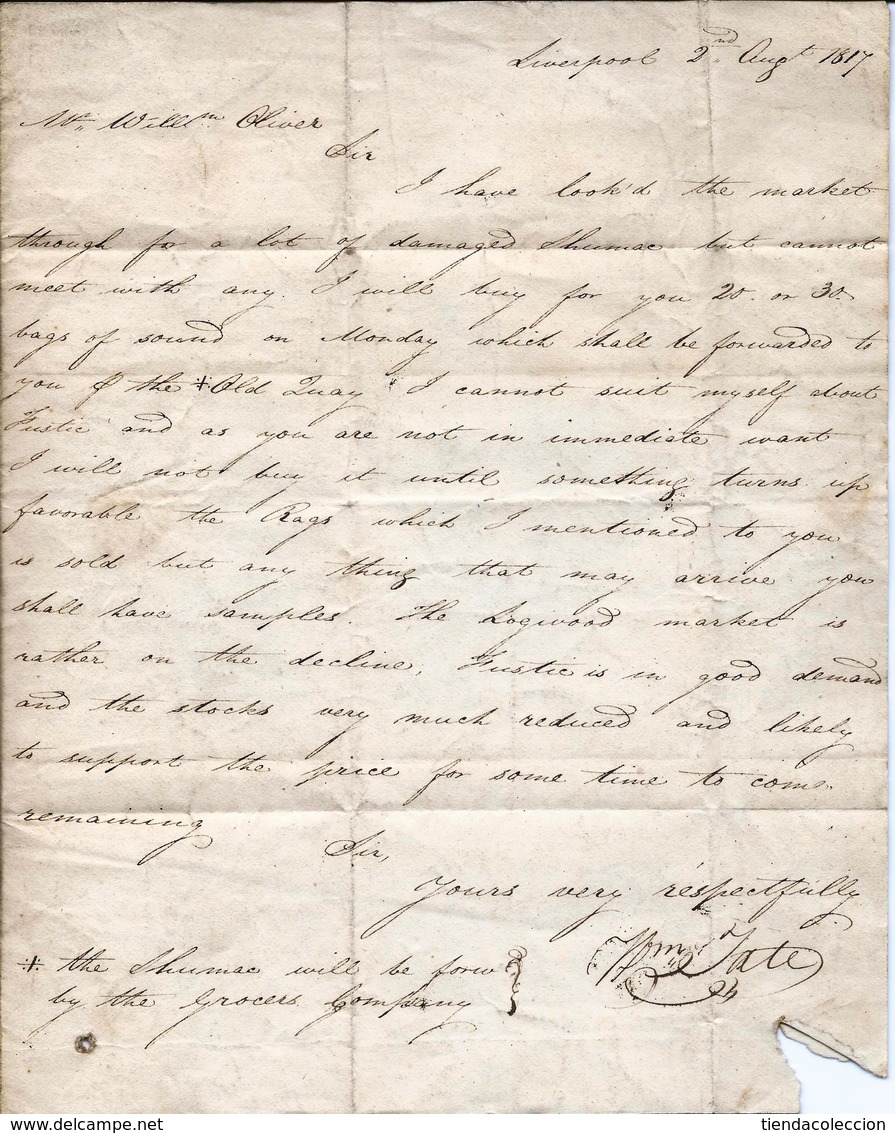 Liverpool 2nd Augt 1817
Mr. Willm Oliver
Sir
I have look'd the market
through for a lot of damaged Shumac but cannot
meet with any. I will buy for you 20 or 30
bags of sound on Monday which shall be forwarded to
you P the * Old Quay I cannot suit myself about
Fustic and as you are not in immediate want
I will not buy it until something turns up
favorable the Rags which I mentioned to you
is sold but any thing that may arrive you
shall have samples. The Logwood market is
rather on the decline, Fustic is in good demand
and the stocks very much reduced and likely
to support the price for some time to come
remaining
Sir,
Yours very respectfully
Wm Tate
* the Shumac will be forw
by the Grocers Company
www.delcampe.net
tiendacoleccion